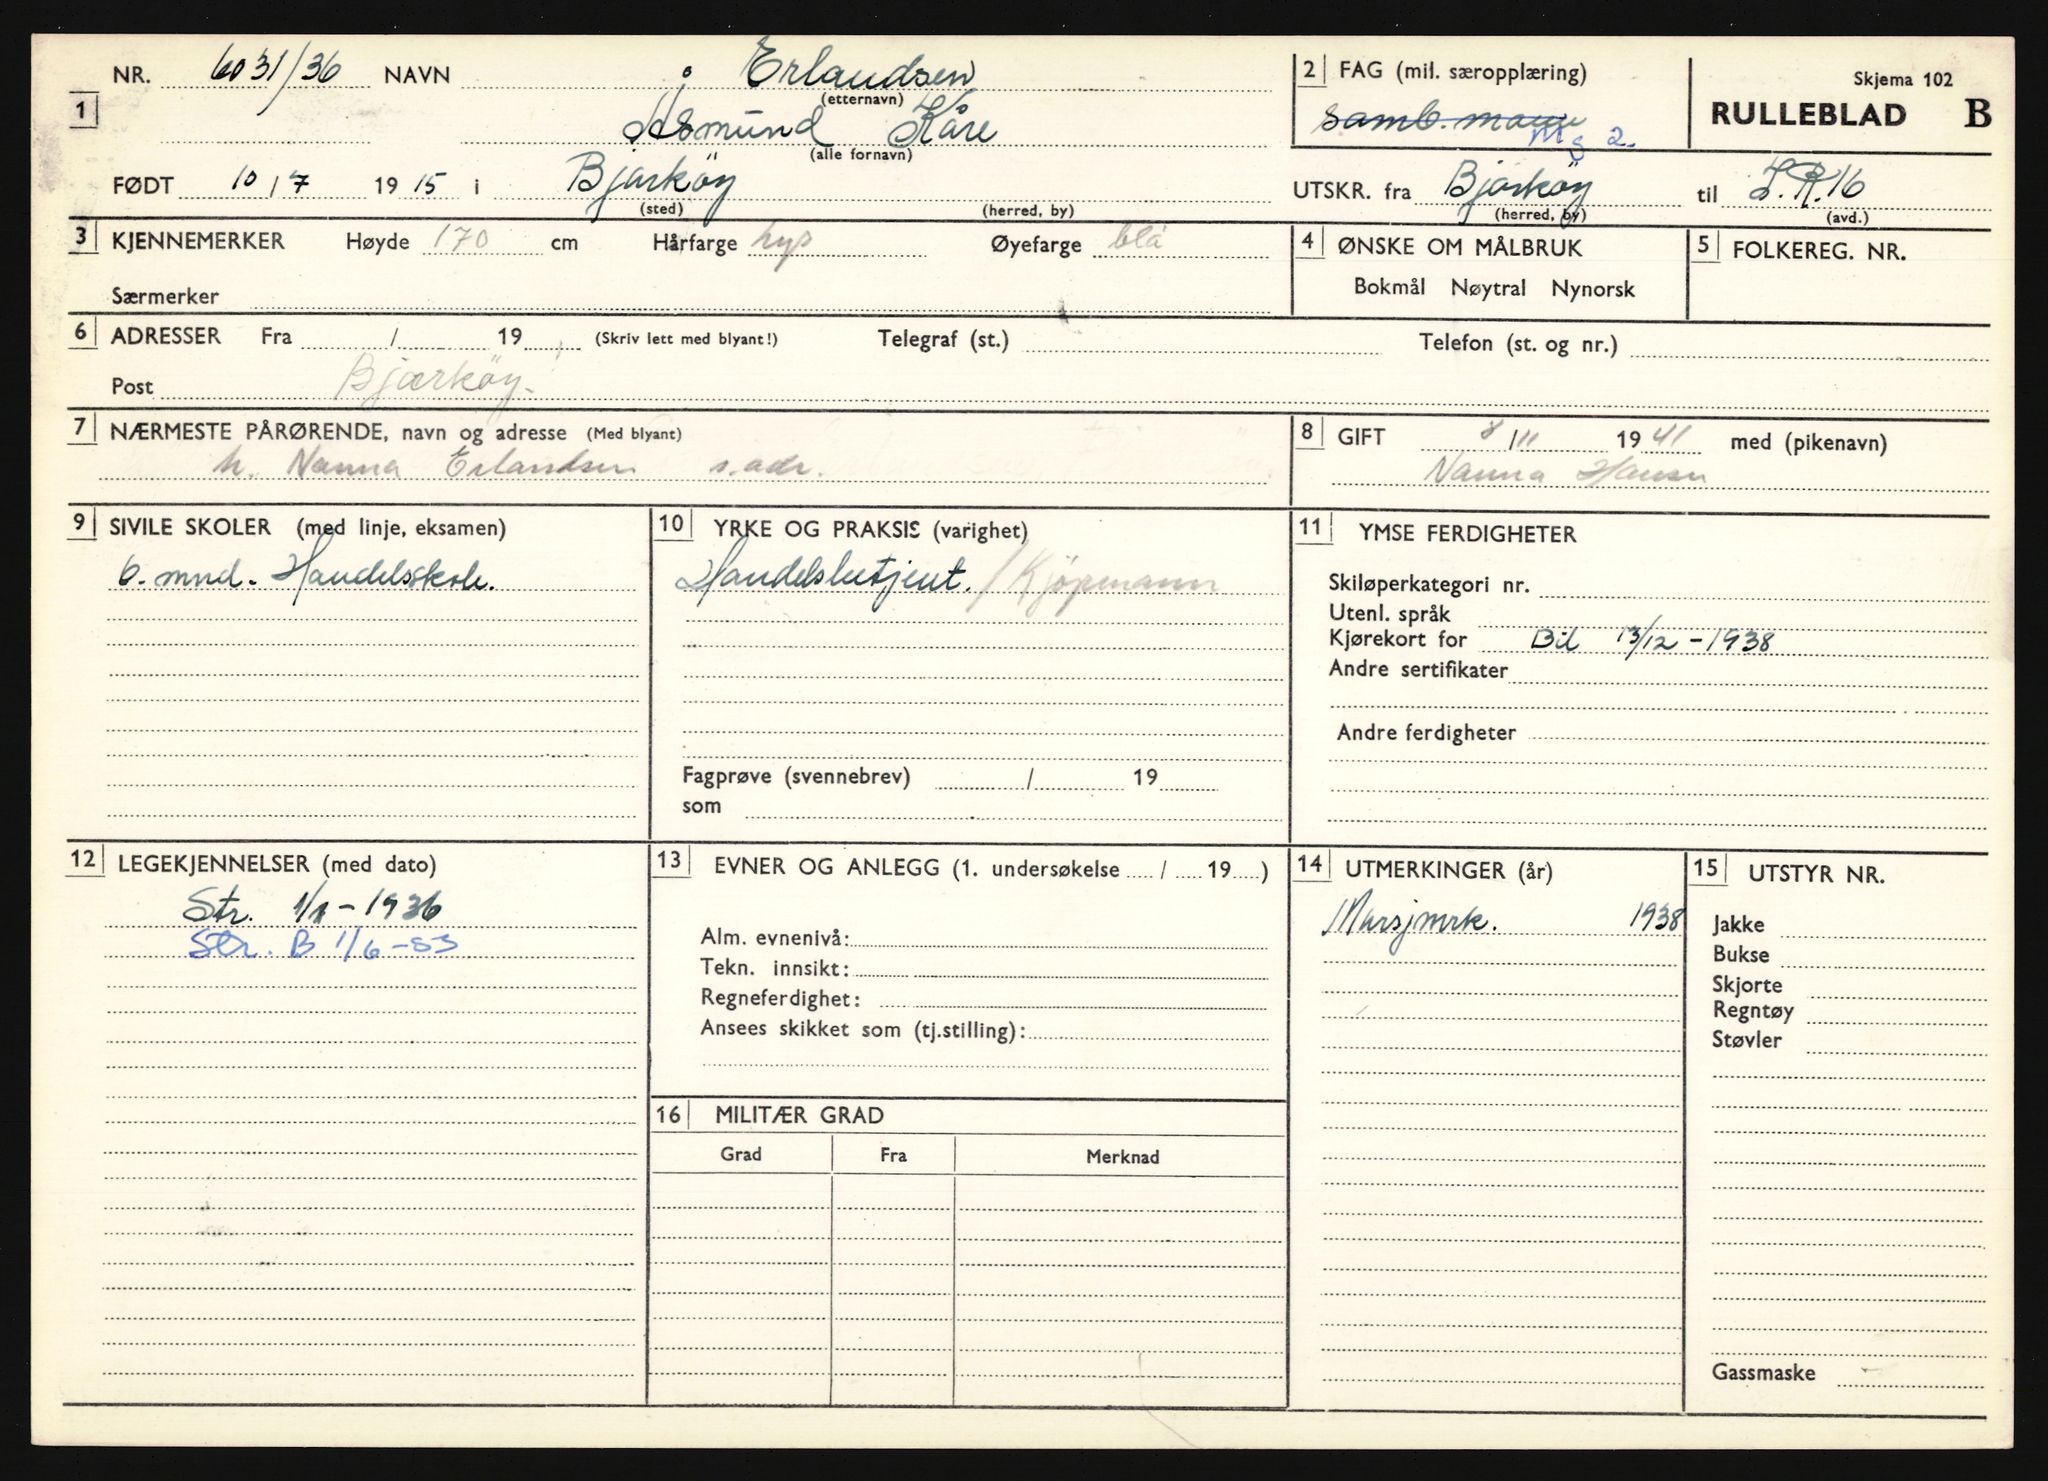 NR. 6031/36 NAVN Erlandsen
(etternavn)
Skjema 102
1
Åsmund Kåre
(alle fornavn)
2 FAG (mil. særopplæring)
Samb. mann
Mg 2.
RULLEBLAD B
FØDT 10/7 1915 i Bjarköy
(sted) (herred, by)
UTSKR. fra Bjarköy til I.R.16
(herred, by) (avd.)
3 KJENNEMERKER Høyde 170 cm Hårfarge lys Øyefarge blå
Særmerker
4 ØNSKE OM MÅLBRUK
Bokmål Nøytral Nynorsk
5 FOLKEREG. NR.
6 ADRESSER Fra / 19 (Skriv lett med blyant!) Telegraf (st.) Telefon (st. og nr.)
Post Bjarköy.
7 NÆRMESTE PÅRØRENDE, navn og adresse (Med blyant)
h. Nanna Erlandsen s.adr.
8 GIFT 8/11 1941 med (pikenavn)
Nanna Hansen
9 SIVILE SKOLER (med linje, eksamen)
6. mnd. Handelsskole.
10 YRKE OG PRAKSIS (varighet)
Handelsbetjent. / Kjöpmann
Fagprøve (svennebrev) / 19
som
11 YMSE FERDIGHETER
Skiløperkategori nr.
Utenl. språk
Kjørekort for Bil 13/12-1938
Andre sertifikater
Andre ferdigheter
12 LEGEKJENNELSER (med dato)
Str. 1/1-1936
Str. B 1/6-53
13 EVNER OG ANLEGG (1. undersøkelse / 19 )
Alm. evnenivå:
Tekn. innsikt:
Regneferdighet:
Ansees skikket som (tj.stilling):
14 UTMERKINGER (år)
Marsjmrk. 1938
15 UTSTYR NR.
Jakke
Bukse
Skjorte
Regntøy
Støvler
Gassmaske
16 MILITÆR GRAD
Grad Fra Merknad